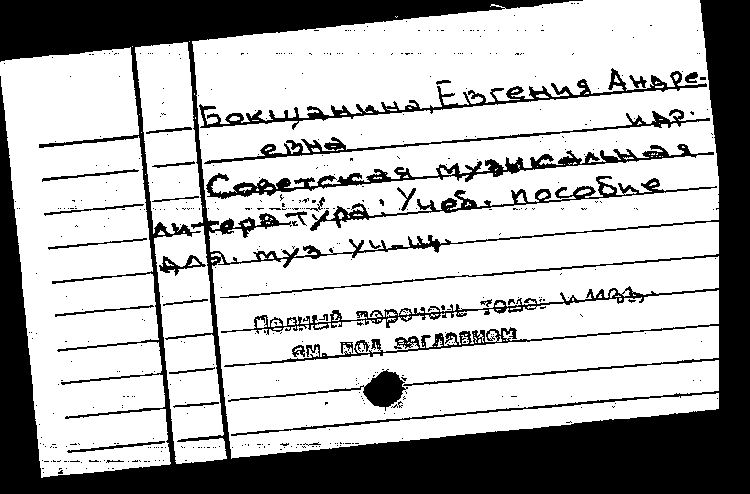 Бокщанина, Евгения Андре-
евна и др.
Советская музыкальная
литература: Учеб. пособие
для муз. уч-щ.
Полный перечень томов и изд.
см. под заглавием